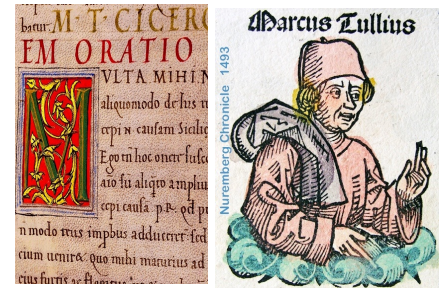 batur. M. T. CICERO
EM ORATIO
VLTA MIHI N
aliquomodo de his re
cepi n causam Sicilię
Ego tñ hoc oneris susce
aio sũ aliq̃to amplius
cepi causã p. R. qd p
n modo reus improbus adduceret sed
cium uenire quo mihi maturius ad
cius furtis ac flagitiis
Marcus Tullius
Nuremberg Chronicle 1493